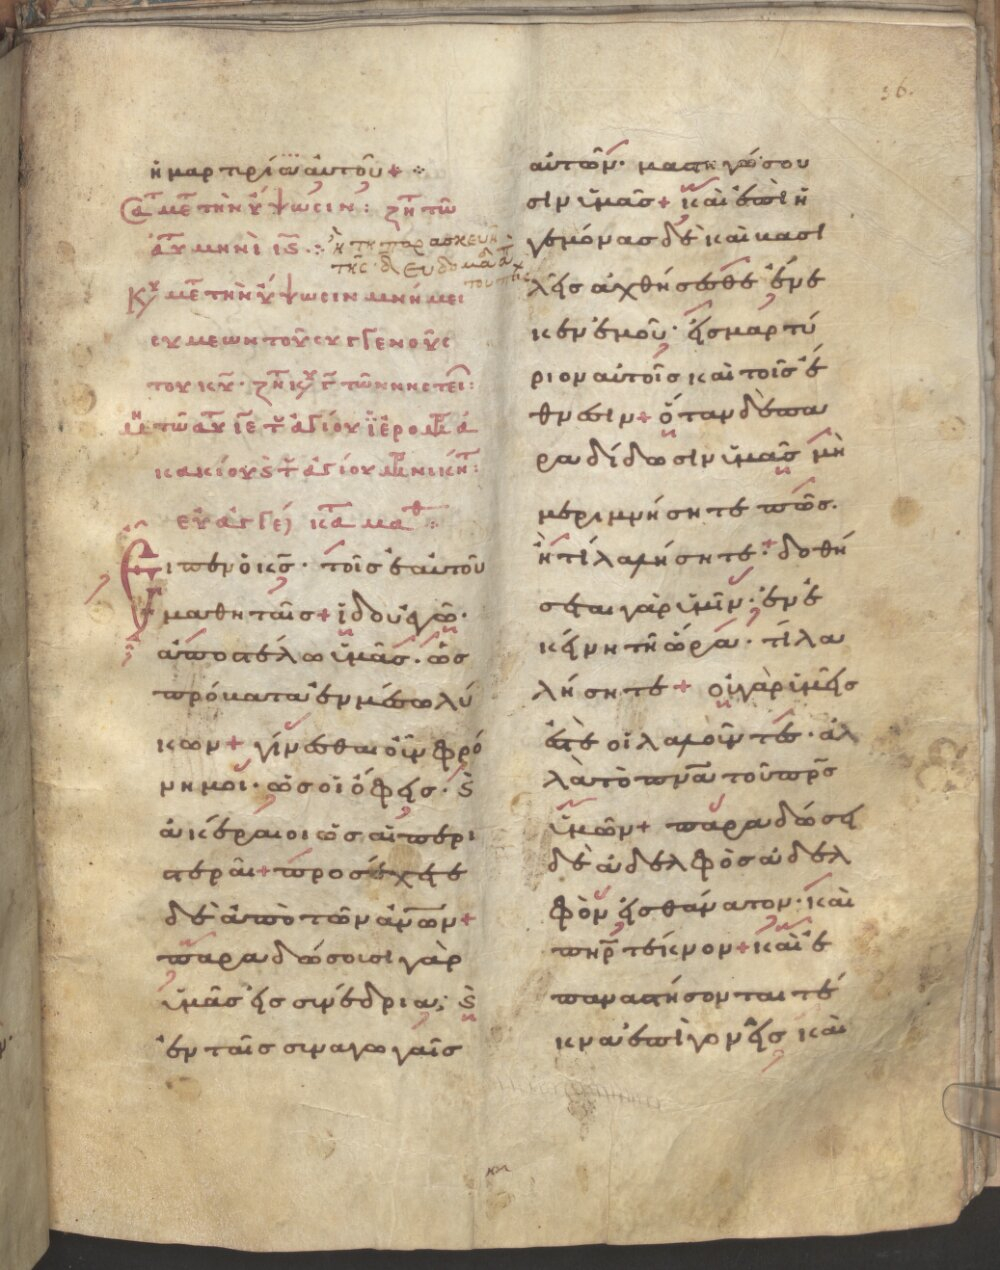 36.
ἡ μαρτυρία αὐτοῦ + ·:·
Σα με τὴν ὕψωσιν: ζη τω
αυ μηνὶ ις ·:·
ἢ τῆ παρασκευῆ
τῆς
Κυ με τὴν ὕψωσιν μνήμει
συμεὼν τοῦ συγγενοῦς
του κυ· ζη κυ γ τῶν νηστει:
τω αυ ιε τ ἁγίου ϊερομ ἀ
κακίου ς τ ἁγίου μ νικήτ:
εὐαγγέ κατα ματθ:
Εἶπεν ὁ κς· τοῖς ἑαυτοῦ
μαθηταῖς + ἰδοὺ ἐγὼ·
ἀποστέλω ὑμᾶς· ὡς
πρόβατα ἐν μέσω λύ
κων + γίνεσθαι οὖν φρό
νημοι· ὡς οἱ ὄφεις· ς
ἀκέραιοι ὡς αἱ περι
στεραὶ + προσέχετε
δὲ ἀπὸ τῶν ἀνων +
παραδώσουσι γὰρ
ὑμᾶς εἰς συνέδρια; ς
ἐν ταῖς συναγωγαῖς
αὐτῶν· μαστιγώσου
σιν ὑμᾶς + καὶ ἐπὶ ἡ
γεμόνας δὲ καὶ βασι
λεῖς ἀχθήσεσθε ἕνε
κεν ἐμοῦ· εἰς μαρτύ
ριον αὐτοῖς καὶ τοῖς ἔ
θνεσιν + ὅταν δὲ πα
ραδίδωσιν ὑμᾶς μὴ
μεριμνήσητε πῶς·
ἢ τί λαλήσητε· + δοθή
σεται γὰρ ὑμῖν· ἐν ἐ
κείνη τῆ ὥρα· τί λα
λήσητε + οὐ γὰρ ὑμεῖς
ἐστὲ οἱ λαλοῦντες· ἀλ
λὰ τὸ πνα τοῦ πρς
ὑμῶν + παραδώσει
δὲ ἀδελφὸς ἀδελ
φὸν εἰς θάνατον· καὶ
πηρ τέκνον + καὶ ἐ
παναστήσονται τέ
κνα ἐπὶ γονεῖς καὶ